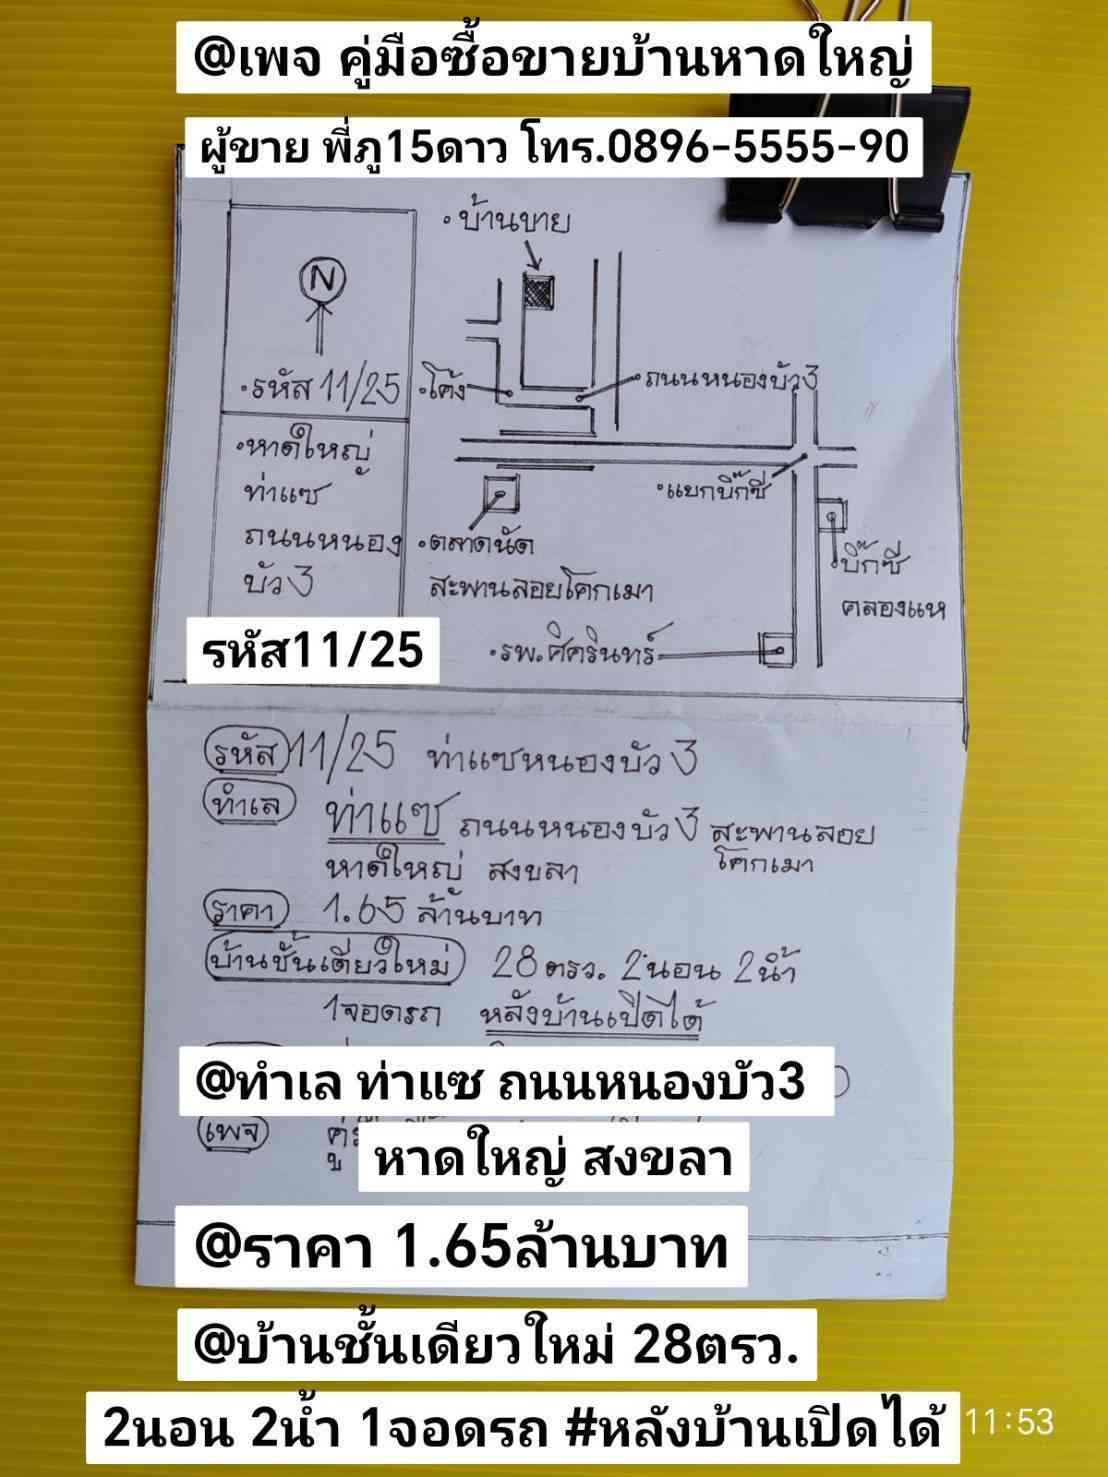 @เพจ คู่มือซื้อขายบ้านหาดใหญ่
ผู้ขาย พี่ภู15ดาว โทร.0896-5555-90
บ้านขาย
N
รหัส 11/25
โค้ง
ถนนหนองบัว3
หาดใหญ่
ท่าแซ
ถนนหนอง
บัว3
แยกบิ๊กซี
ตลาดนัด
สะพานลอยโคกเมา
บิ๊กซี
คลองแห
รหัส11/25
รพ.ศิครินทร์
รหัส 11/25 ท่าแซหนองบัว 3
ทำเล ท่าแซ ถนนหนองบัว 3 สะพานลอย
โคกเมา
หาดใหญ่ สงขลา
ราคา 1.65 ล้านบาท
บ้านชั้นเดียวใหม่ 28 ตรว. 2นอน 2น้ำ
1จอดรถ หลังบ้านเปิดได้
@ทำเล ท่าแซ ถนนหนองบัว3
เพจ
หาดใหญ่ สงขลา
@ราคา 1.65ล้านบาท
@บ้านชั้นเดียวใหม่ 28ตรว.
2นอน 2น้ำ 1จอดรถ #หลังบ้านเปิดได้
11:53